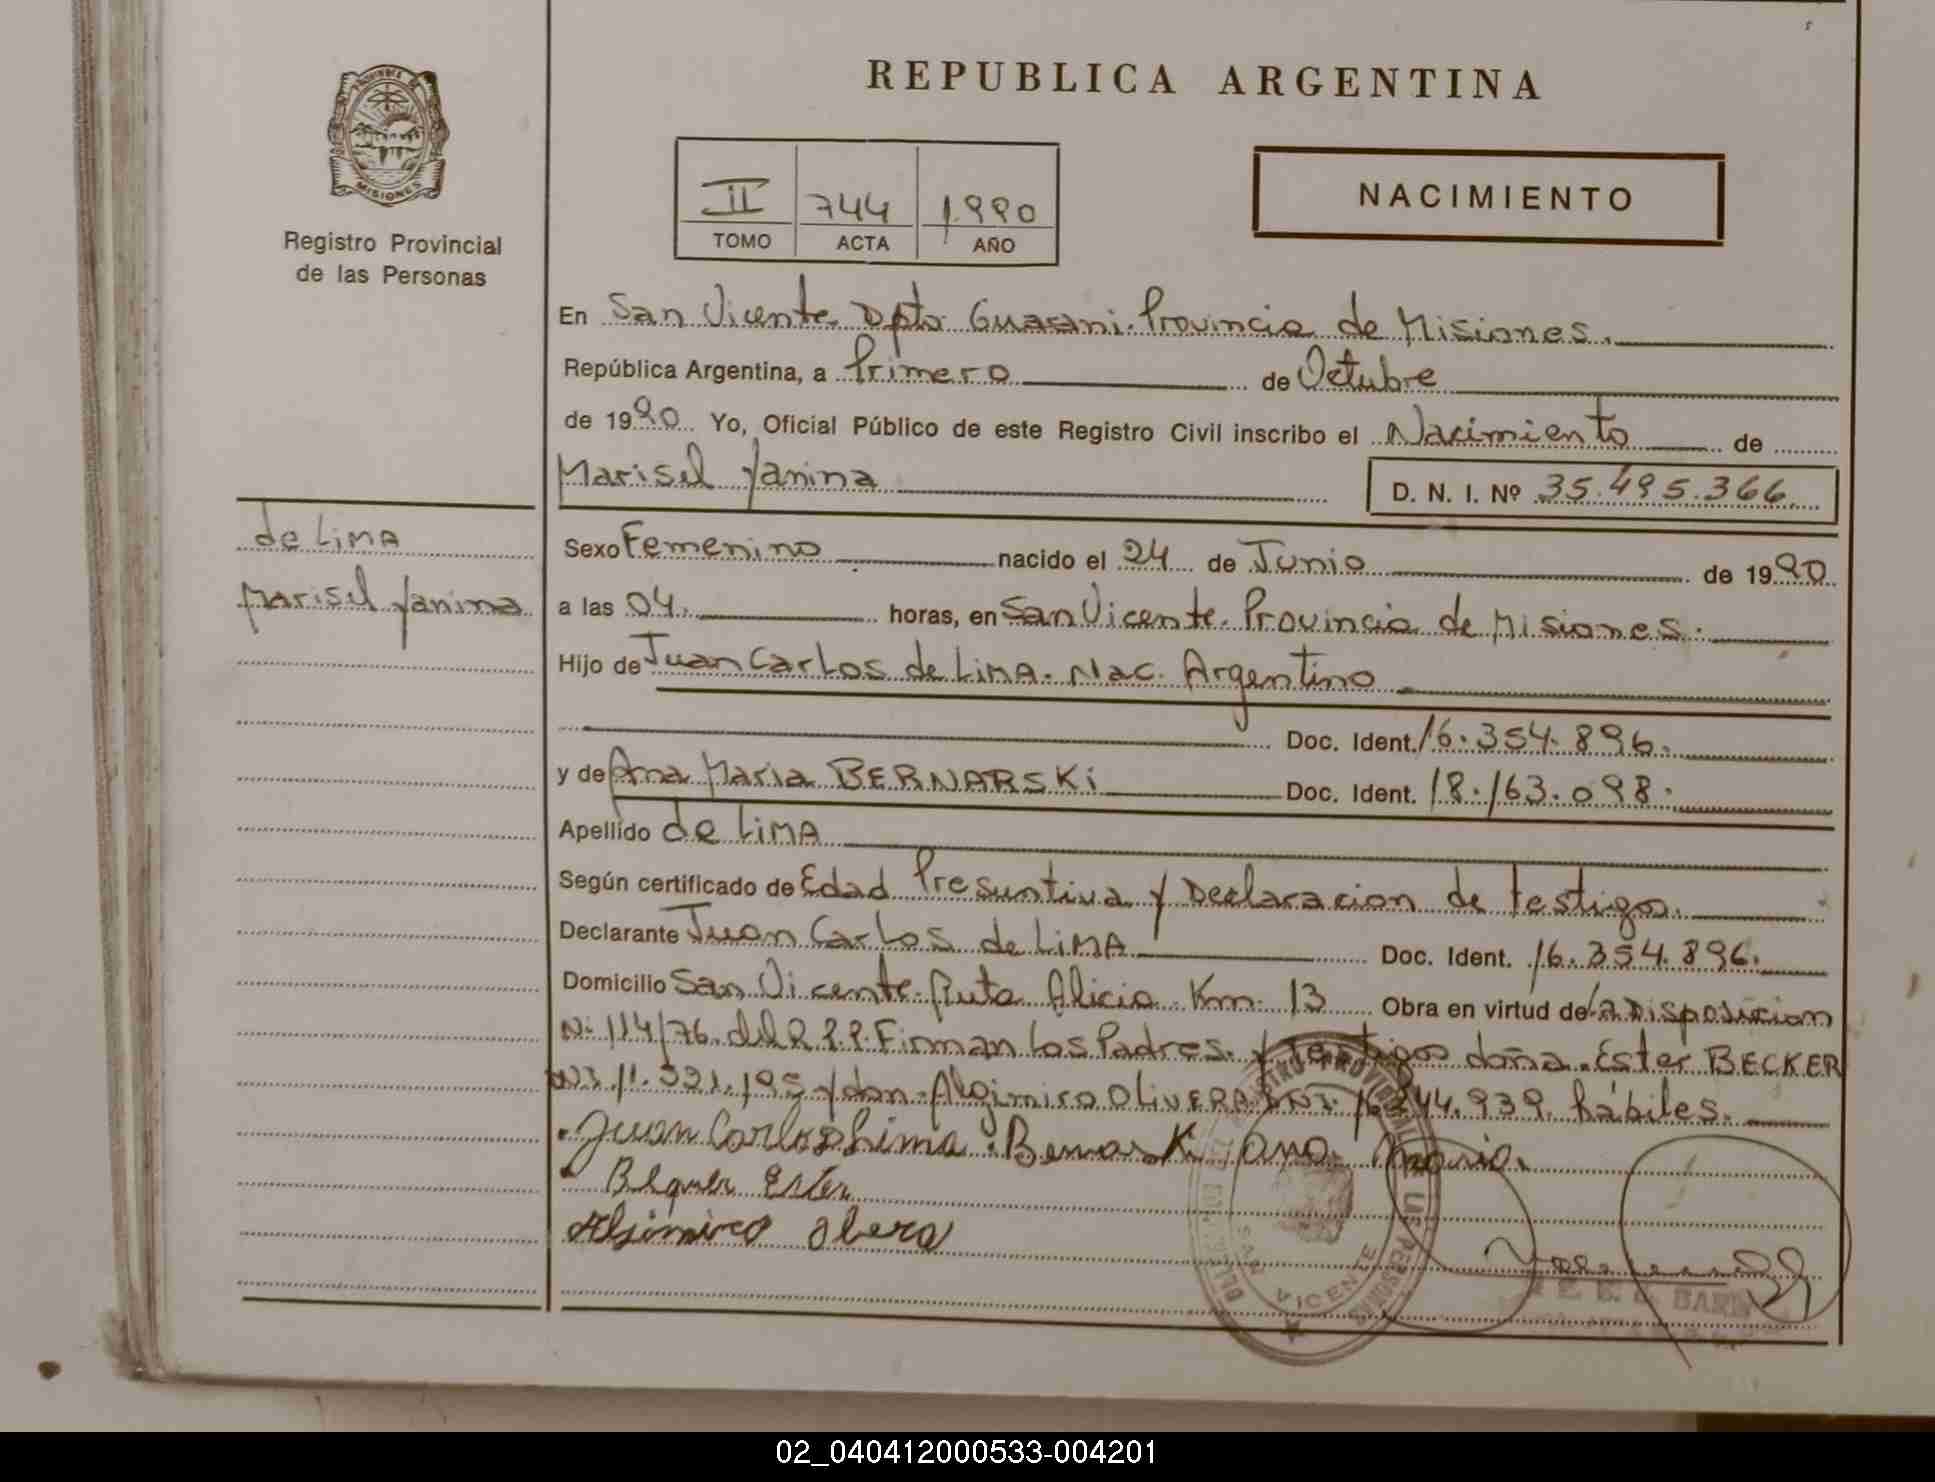 REPUBLICA ARGENTINA
PROVINCIA DE
MISIONES
Registro Provincial
de las Personas
II 744 1990
TOMO ACTA AÑO
NACIMIENTO
En San Vicente Dpto Guarani. Provincia de Misiones.
República Argentina, a Primero de Octubre
de 1990 Yo, Oficial Público de este Registro Civil inscribo el Nacimiento de
Marisel Yanina D. N. I. Nº 35.495.366
de LiMA
Marisel Yanina
Sexo Femenino nacido el 24 de Junio de 1990
a las 04. horas, en San Vicente. Provincia de Misiones.
Hijo de Juan Carlos de LiMA. Nac. Argentino
Doc. Ident. 16.354.896.
y de Ana Maria BERNARSKi Doc. Ident. 18.163.098.
Apellido de LiMA
Según certificado de Edad Presuntiva y Declaracion de testigos.
Declarante Juan Carlos de LiMA Doc. Ident. 16.354.896.
Domicilio San Vicente. Ruta Alicia Km. 13 Obra en virtud de la Disposicion
Nº 114/76. del R.P.P. Firman los Padres. y testigos doña. Ester BECKER
DNI. 11.521.195 y don. Algimiro OLiVERA DNI. 16.244.939. hábiles.
Juan Carlos de Lima. Benarski Ana Maria.
Bequer Ester
Alsimiro Olvera
SAN VICENTE
02_040412000533-004201